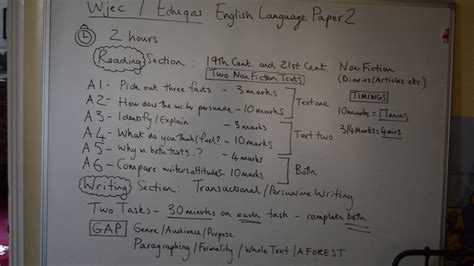 Wjec / Eduqas English Language Paper 2
2 hours
Reading Section: 19th Cent. and 21st Cent. Non-Fiction
Two Non Fiction Texts (Diaries/Articles etc.)
A1 - Pick out three facts - 3 marks
A2 - How does the write persuade - 10 marks Text one
A3 - Identify/Explain - 3 marks
A4 - What do you think/feel? - 10 marks Text two
A5 - Why in both texts...? - 4 marks
A6 - Compare writers attitudes - 10 marks Both
TIMINGS
10 marks =
3/4 Marks = 4 mins
Writing Section: Transactional/Persuasive Writing
Two Tasks - 30 minutes on each task - complete both
GAP Genre/Audience/Purpose
Paragraphing/Formality/Whole Text/AFOREST